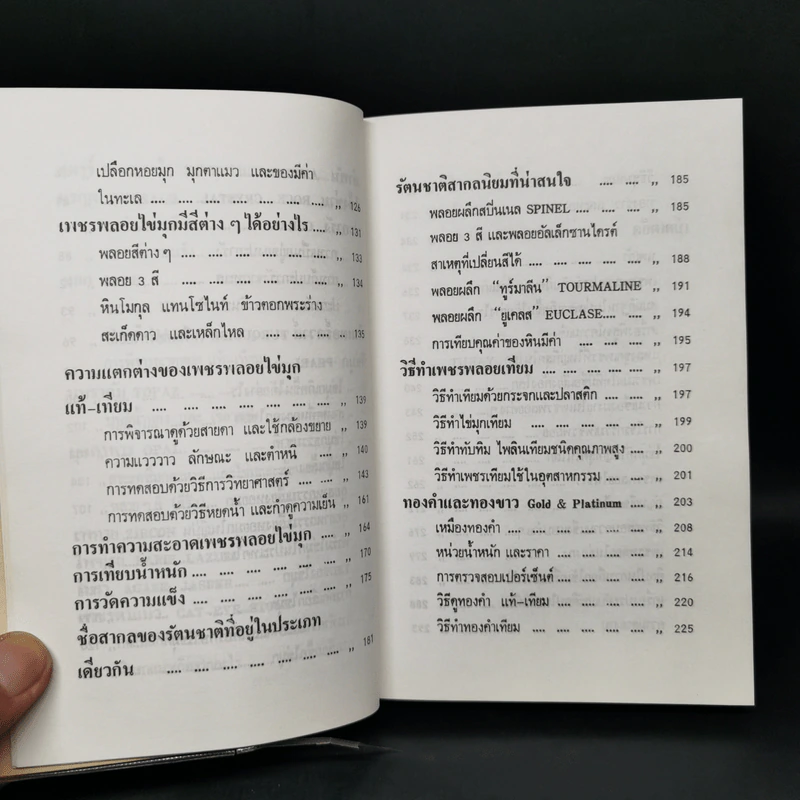 เปลือกหอยมุก มุกตาแมว และของมีค่า
ในทะเล .... .... .... .... .... .... .... ,, 126
เพชรพลอยไข่มุกมีสีต่าง ๆ ได้อย่างไร .... ,, 131
พลอยสีต่างๆ .... .... .... .... .... ,, 133
พลอย 3 สี .... .... .... .... .... ,, 134
หินโมกุล แทนโซไนท์ ข้าวตอกพระร่วง
สะเก็ดดาว และเหล็กไหล .... .... .... .. ,, 135
ความแตกต่างของเพชรพลอยไข่มุก
แท้-เทียม .... .... .... .... .... .... .... ,, 139
การพิจารณาดูด้วยสายตา และใช้กล้องขยาย ,, 139
ความแวววาว ลักษณะ และตำหนิ .... .... ,, 140
การทดสอบด้วยวิธีการวิทยาศาสตร์ .... .... ,, 143
การทดสอบด้วยวิธีหยดน้ำ และกำดูความเย็น ,, 161
การทำความสะอาดเพชรพลอยไข่มุก .... ,, 164
การเทียบน้ำหนัก .... .... .... .... .... .... ,, 170
การวัดความแข็ง .... .... .... .... .... .... ,, 175
ชื่อสากลของรัตนชาติที่อยู่ในประเภท
เดียวกัน .... .... .... .... .... .... .... ,, 181
รัตนชาติสากลนิยมที่น่าสนใจ .... .... ,, 185
พลอยผลึกสปิ่นเนล SPINEL .... .... .... ,, 185
พลอย 3 สี และพลอยอัลเล็กซานไดรต์
สาเหตุที่เปลี่ยนสีได้ .... .... .... .... .... ,, 188
พลอยผลึก “ทูร์มาลีน” TOURMALINE ,, 191
พลอยผลึก “ยูเคลส” EUCLASE.... .... ,, 194
การเทียบคุณค่าของหินมีค่า .... .... .... ,, 195
วิธีทำเพชรพลอยเทียม .... .... .... .... ,, 197
วิธีทำเทียมด้วยกระจกและปลาสติก .... .... ,, 197
วิธีทำไข่มุกเทียม .... .... .... .... .... ,, 199
วิธีทำทับทิม ไพลินเทียมชนิดคุณภาพสูง .... ,, 200
วิธีทำเพชรเทียมใช้ในอุตสาหกรรม .... .... ,, 201
ทองคำและทองขาว Gold & Platinum .... ,, 203
เหมืองทองคำ .... .... .... .... .... .... ,, 208
หน่วยน้ำหนัก และราคา .... .... .... .... ,, 214
การตรวจสอบเปอร์เซ็นต์ .... .... .... .... ,, 216
วิธีดูทองคำ แท้-เทียม .... .... .... .... ,, 220
วิธีทำทองคำเทียม .... .... .... .... .... ,, 225